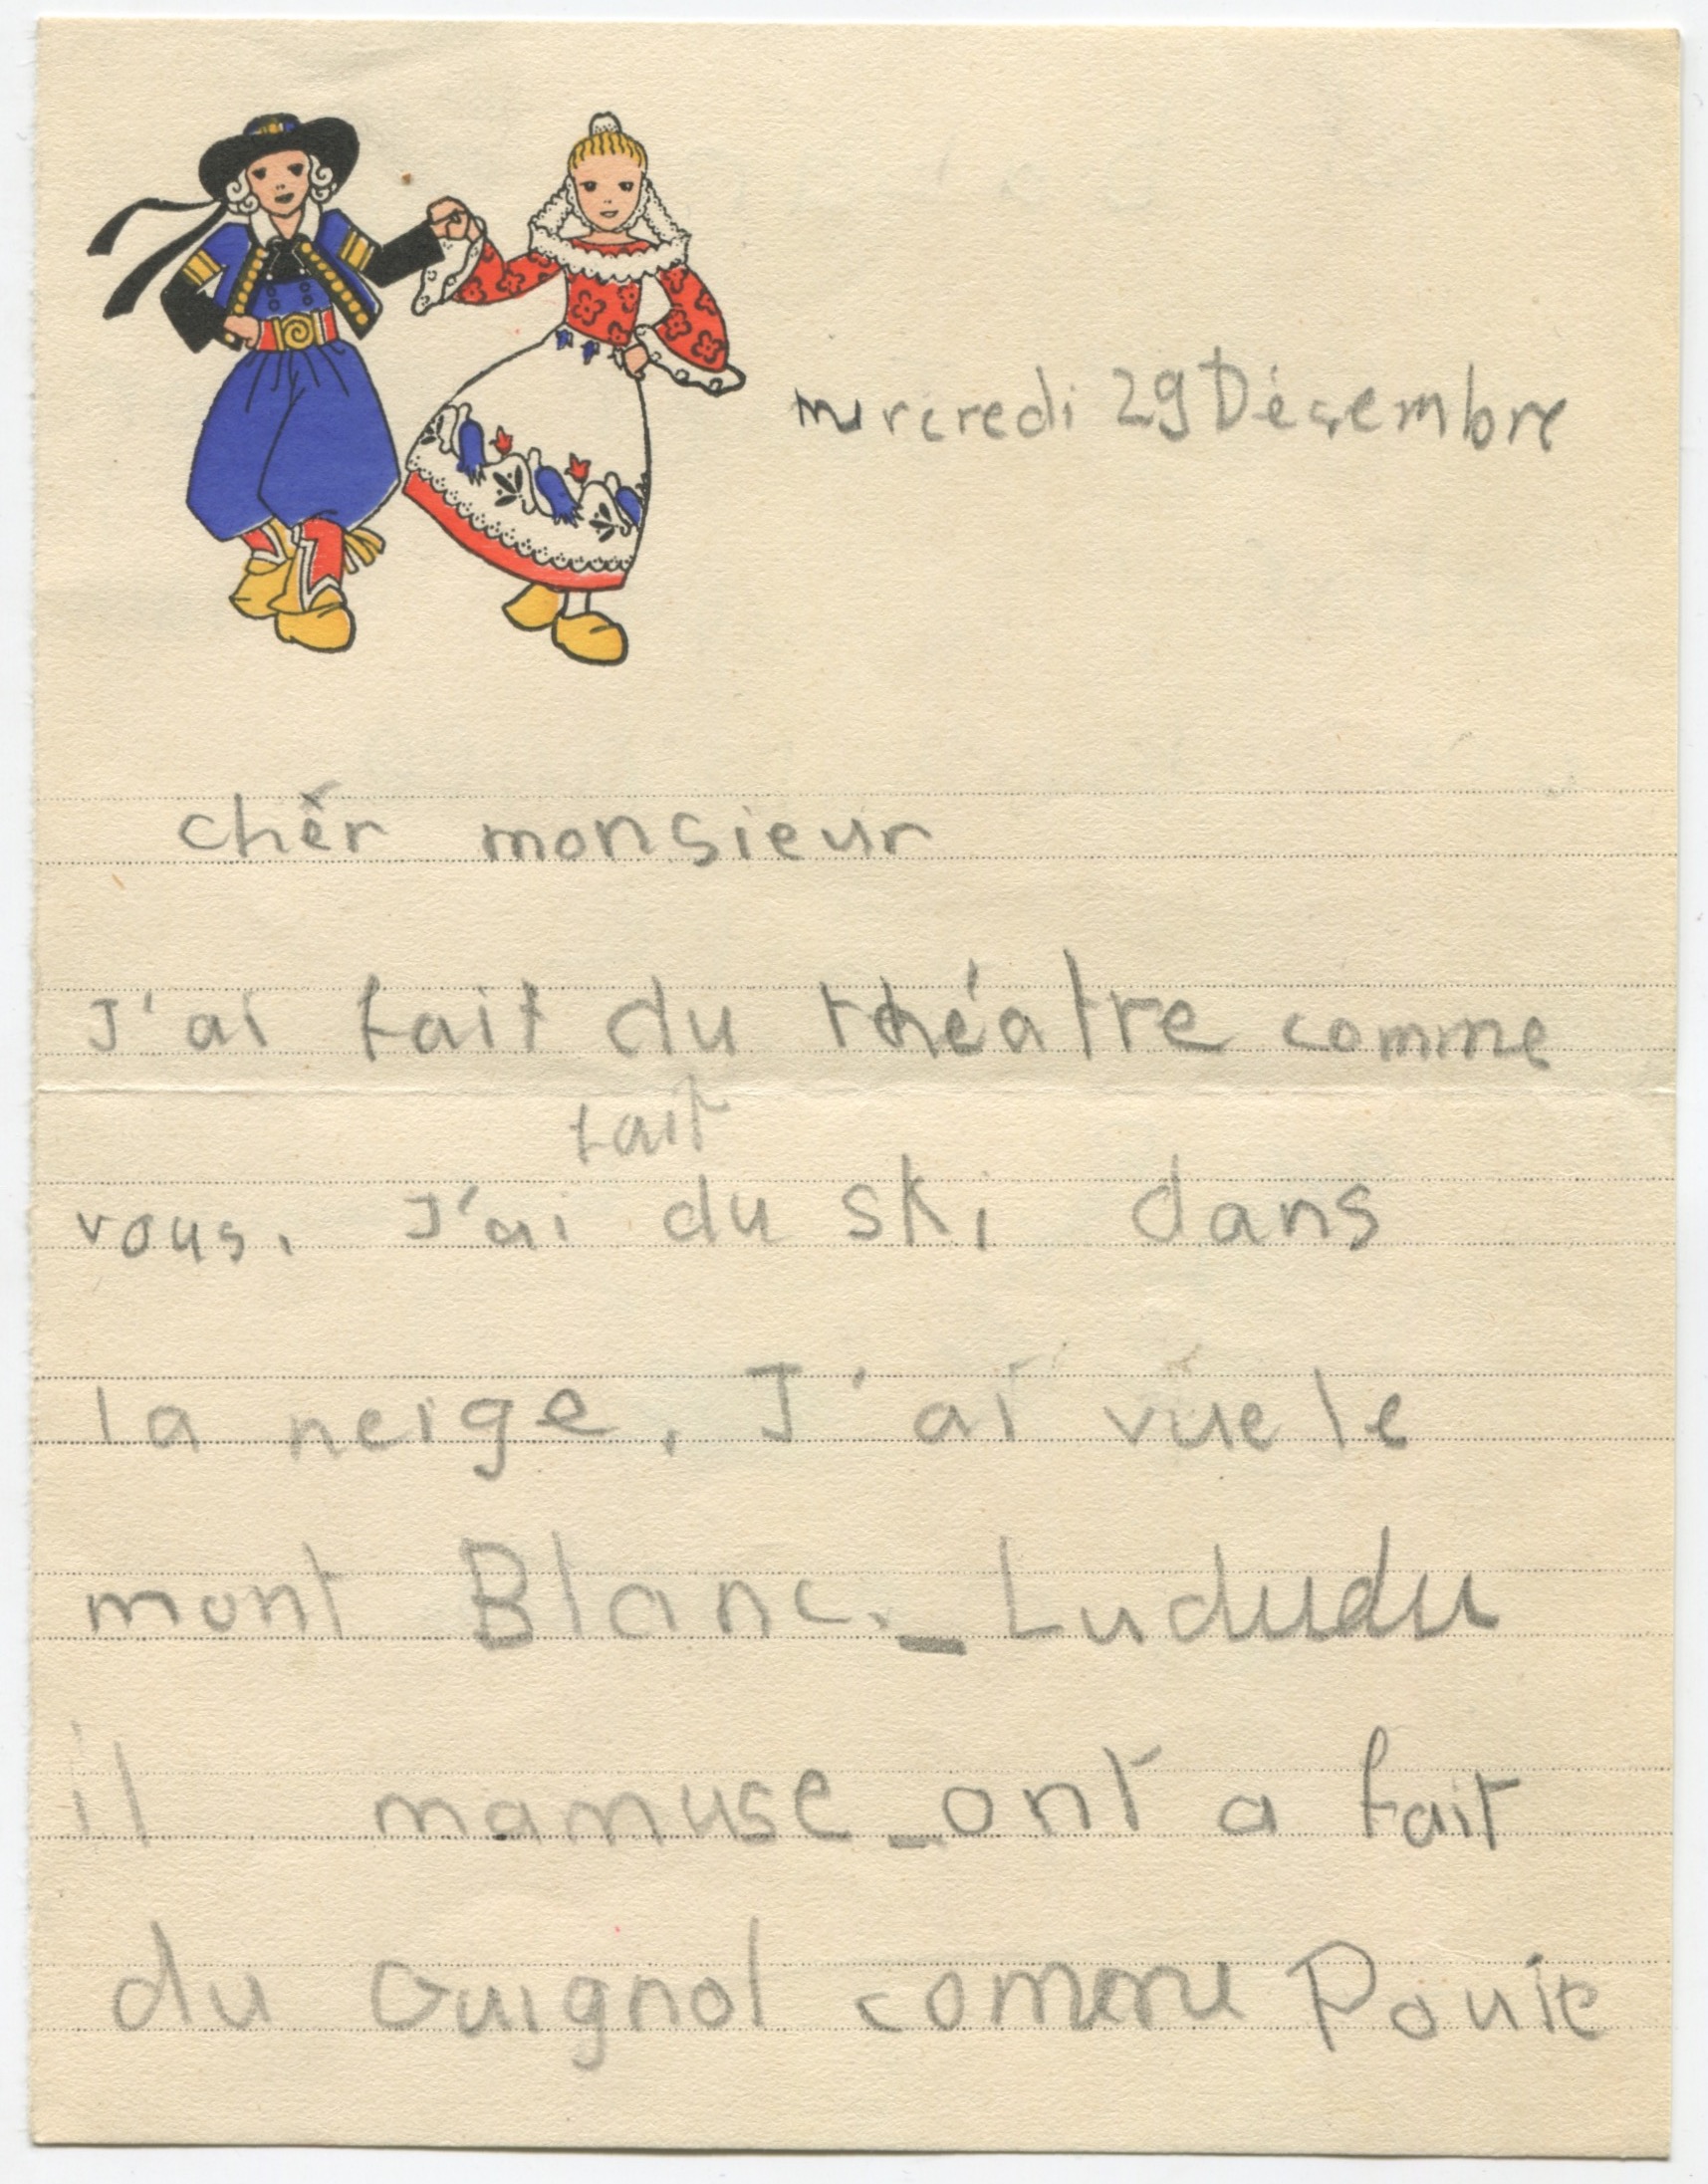 mercredi 29 Déçembre
chêr monsieur
J'ai fait du théatre comme
fait
vous. J'ai du ski dans
la neige. J'ai vue le
mont Blanc._Lududu
il mamuse_ont a fait
du Guignol comme Pouic